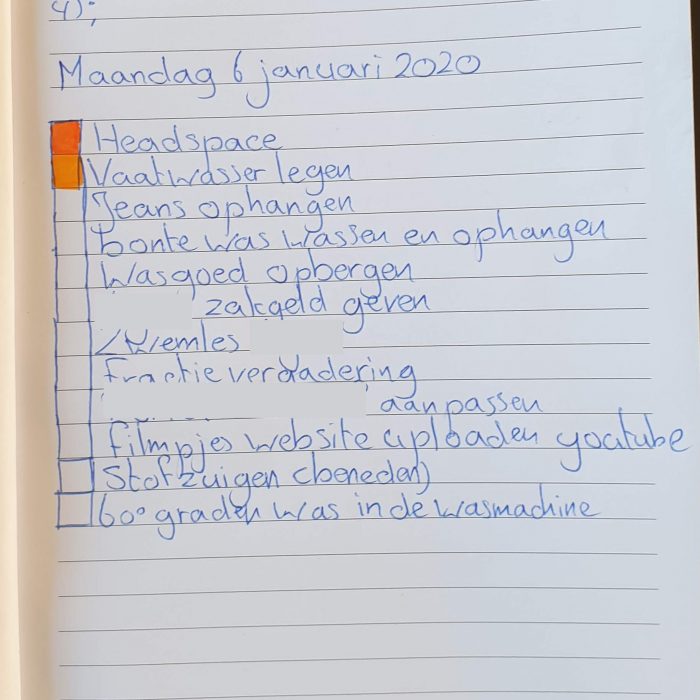 4);
Maandag 6 januari 2020
Headspace
Vaatwasser legen
Jeans ophangen
bonte was wassen en ophangen
Wasgoed opbergen
zakgeld geven
Zwemles
Fractievergadering
aanpassen
filmpjes website uploaden youtube
Stofzuigen (beneden)
60° graden was in de wasmachine